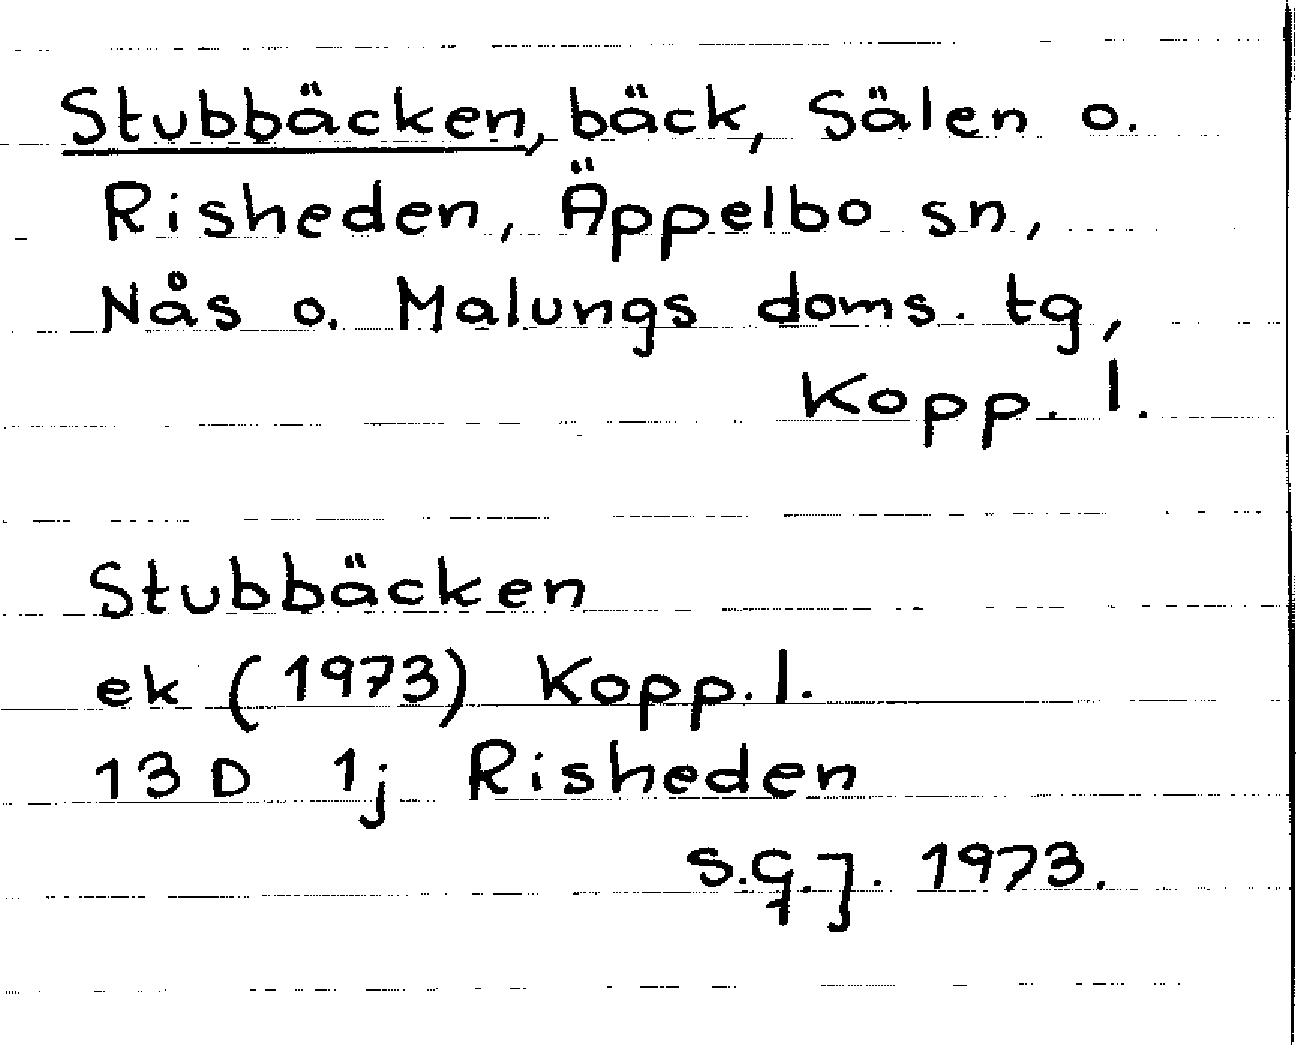 Stubbäcken, bäck, Sälen o.
Risheden, Äppelbo sn,
Nås o. Malungs doms. tg,
Kopp. l.
Stubbäcken
ek (1973) Kopp. l.
13 D 1j Risheden
S.G.J. 1973.